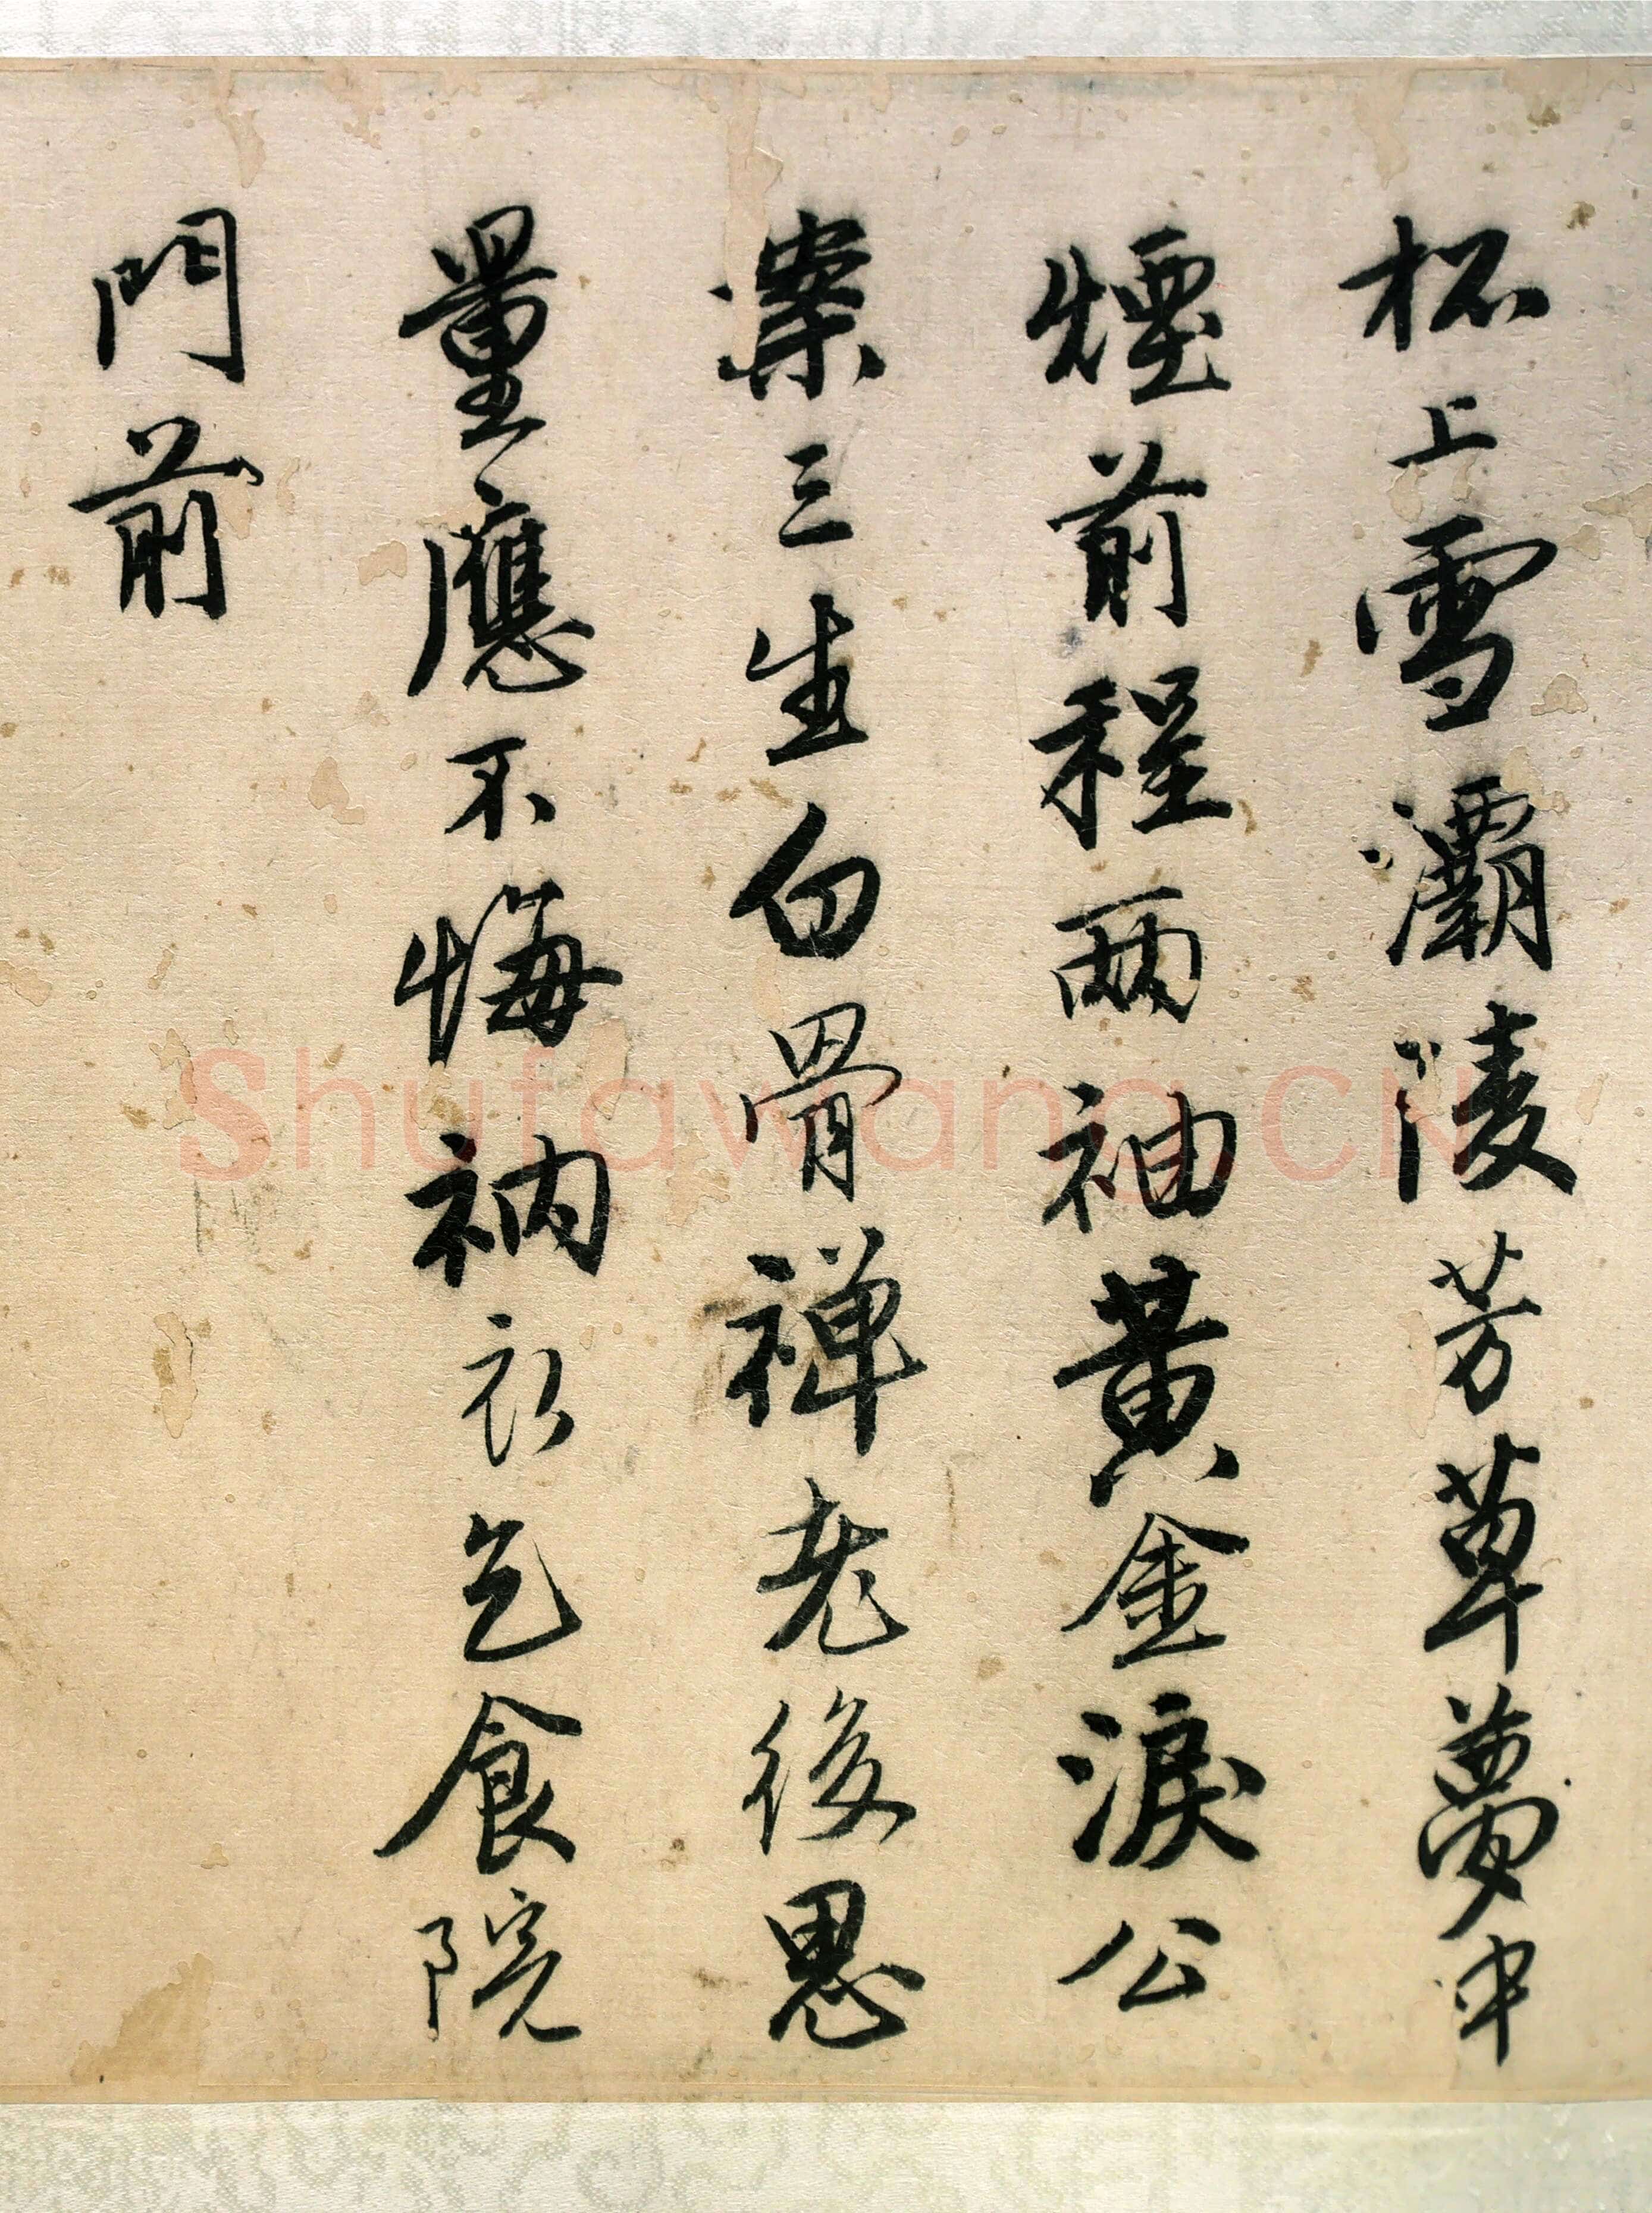 杯上雪灞陵芳草夢中
煙前程兩袖黃金淚公
案三生白骨禪老後思
量應不悔衲衣乞食院
門前
Shufawang.CN